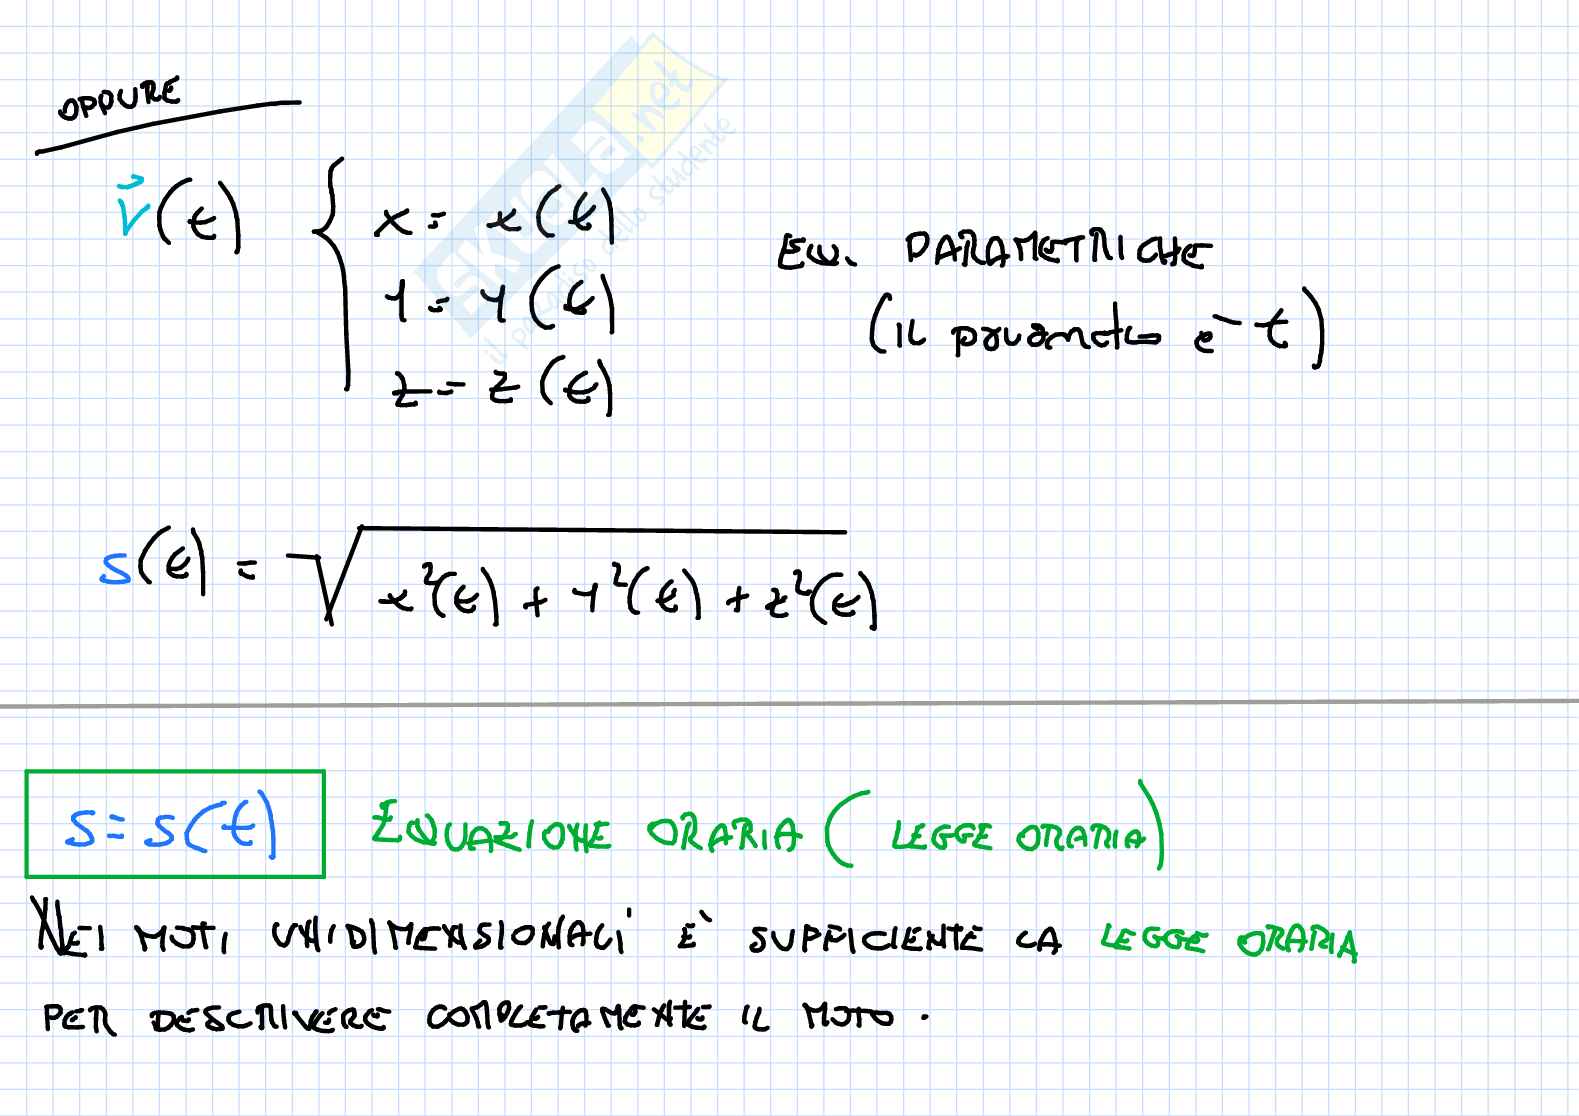 OPPURE
v⃗(t) { x = x(t)
y = y(t)
z = z(t)
EQ. PARAMETRICHE
(IL parametro è t)
s(t) = √(x²(t) + y²(t) + z²(t))
s = s(t) EQUAZIONE ORARIA (LEGGE ORARIA)
NEI MOTI UNIDIMENSIONALI È SUFFICIENTE LA LEGGE ORARIA
PER DESCRIVERE COMPLETAMENTE IL MOTO.
SKUOLA.net
il paradiso dello studente